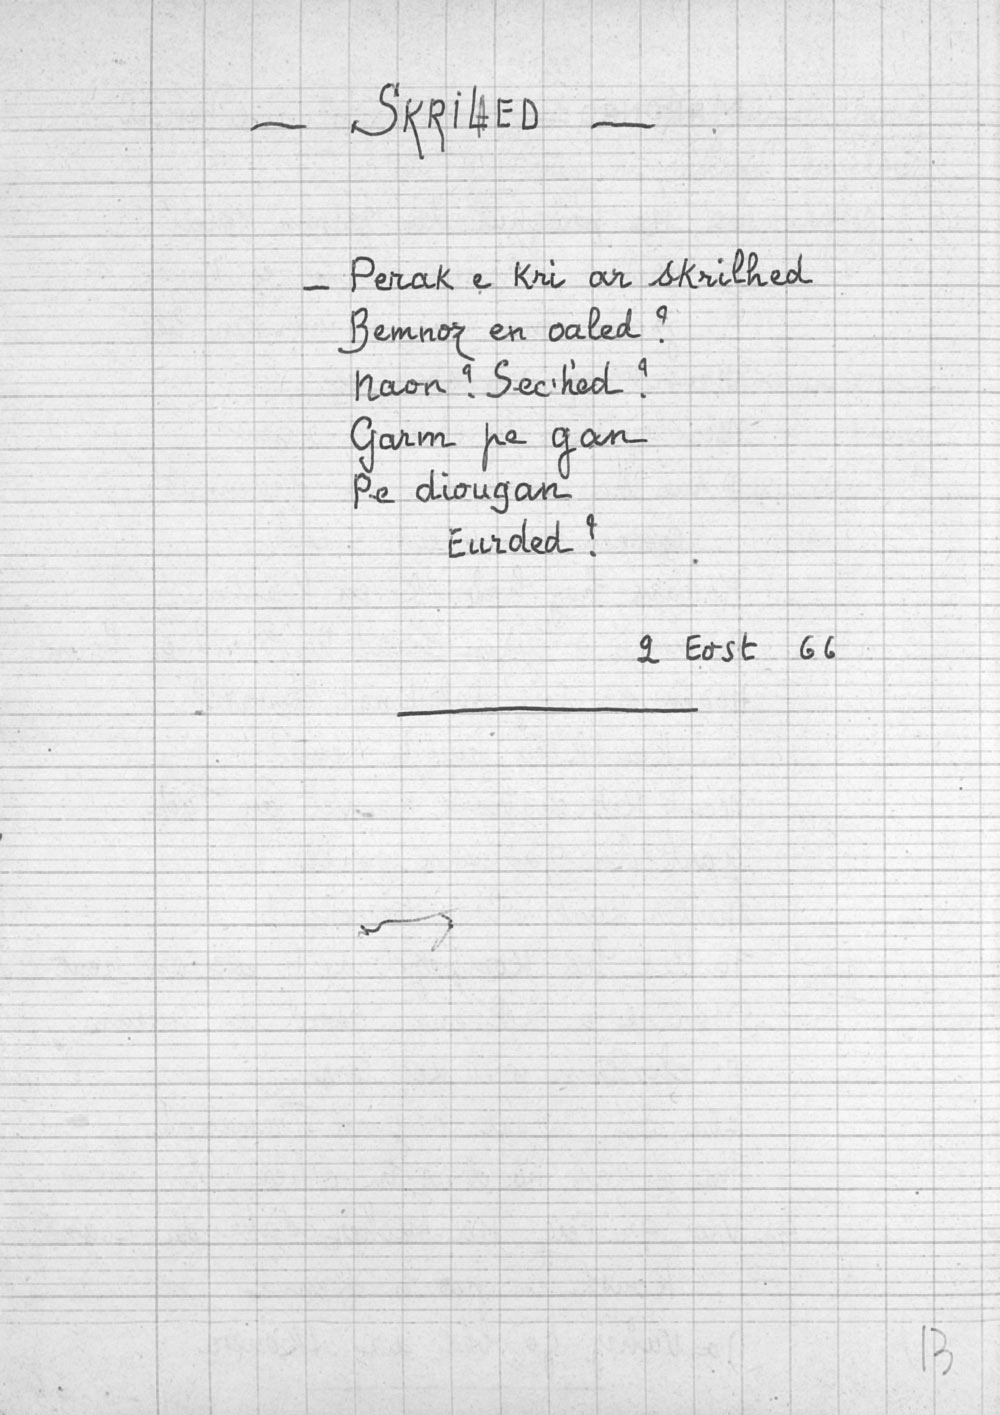 — SKRILHED —
– Perak e kri ar skrilhed
Bemnoz en oaled ?
Naon ? Sec'hed ?
Garm pe gan
Pe diougan
Eurded ?
2 Eost 66
13